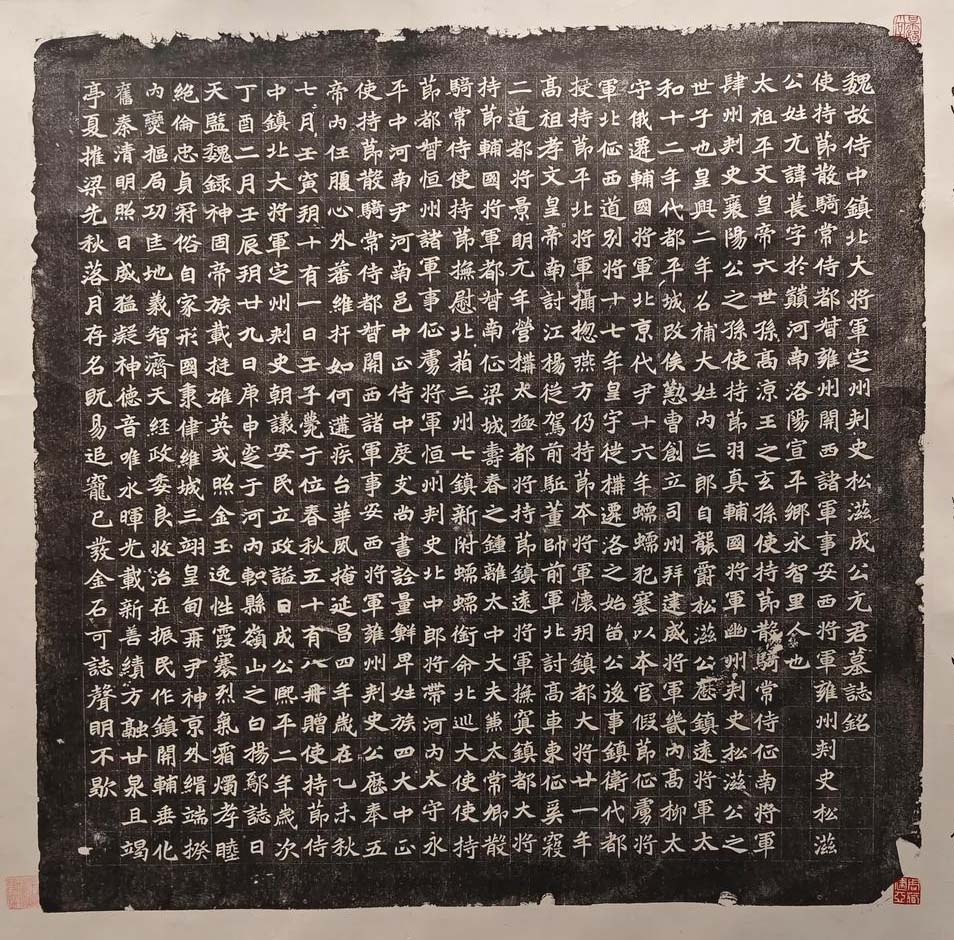 魏故侍中鎮北大將軍定州刾史松滋成公元君墓誌銘
使持節散騎常侍都督雍州開西諸軍事安西將軍雍州刾史松滋
公姓元諱萇字於巔河南洛陽宣平鄉永智里人也
太祖平文皇帝六世孫高涼王之玄孫使持節散騎常侍征南將軍
肆州刾史襄陽公之孫使持節羽真輔國將軍幽州刾史松滋公之
世子也皇興二年名補大姓內三郎自襲爵松滋公歷鎮遠將軍太
和十二年代都平城改俟懃曹創立司州拜建威將軍畿內高柳太
守俄遷輔國將軍北京代尹十六年蠕蠕犯塞以本官假節征虜將
軍北征西道別將十七年皇宇徙構遷洛之始留公後事鎮衛代都
授持節平北將軍攝揔燕方仍持節本將軍懷朔鎮都大將廿一年
高祖孝文皇帝南討江楊從駕前駈董帥前軍北討高車東征奚寇
二道都將景明元年營構太極都將持節鎮遠將軍撫冥鎮都大將
持節輔國將軍都督南征梁城壽春之鍾離太中大夫兼太常卿散
騎常侍使持節撫慰北萡三州七鎮新附蠕蠕銜命北巡大使使持
節都督恒州諸軍事征虜將軍恒州刾史北中郎將帶河內太守永
平中河南尹河南邑中正侍中度支尚書詮量鮮卑姓族四大中正
使持節散騎常侍都督開西諸軍事安西將軍雍州刾史公歷奉五
帝內任腹心外蕃維扞如何遘疾台華夙掩延昌四年歲在乙未秋
七月壬寅朔十有一日壬子薨于位春秋五十有八冊贈使持節侍
中鎮北大將軍定州刾史朝議安民立政謚曰成公熙平二年歲次
丁酉二月壬辰朔廿九日庚申窆于河內軹縣嶺山之白楊鄔誌曰
天監魏錄神固帝族載挺雄英彧照金玉逸性霞騫烈氣霜燭孝睦
絕倫忠貞冠俗自家形國秉律維城三翊皇甸再尹神京外緝端揆
內樞局功地羲智濟天經政委良收治在振民作鎮開輔垂化
舊秦清明照日威猛凝神德音唯永暉光載新善績方融甘泉且竭
亭夏摧梁先秋落月存名既易追寵已金石可誌聲明不歇